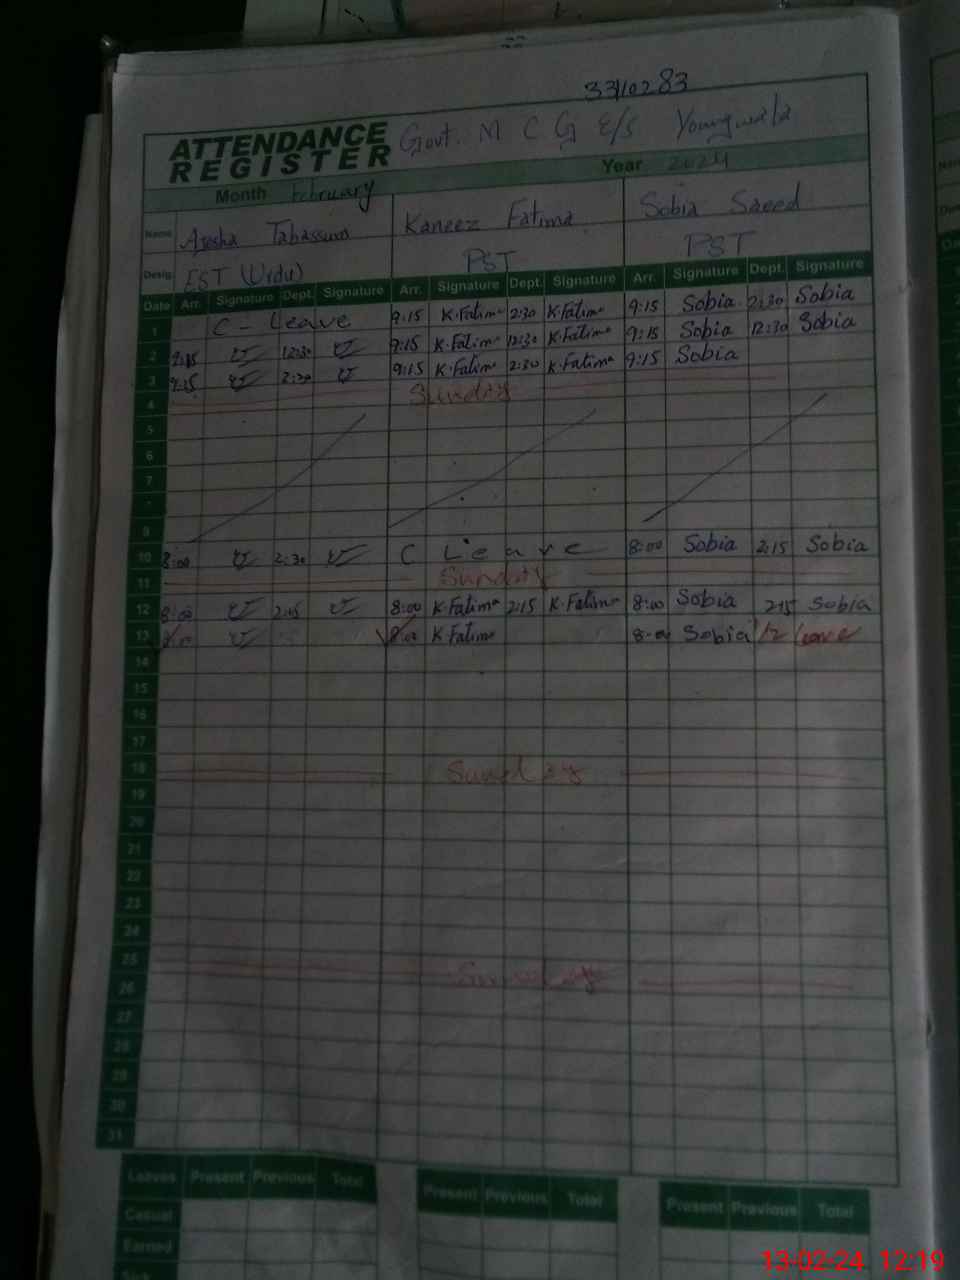 33110283
ATTENDANCE REGISTER Govt. M C G E/S Youngwala
Month February Year 2024
Name Ayesha Tabassum Kaneez Fatima Sobia Saeed
Desig. EST (Urdu) PST PST
Date Arr. Signature Dept. Signature Arr. Signature Dept. Signature Arr. Signature Dept. Signature
1 C - Leave 9:15 K.Fatima 2:30 K.Fatima 9:15 Sobia 2:30 Sobia
2 9:15 12:30 9:15 K.Fatima 12:30 K.Fatima 9:15 Sobia 12:30 Sobia
3 9:15 2:30 9:15 K.Fatima 2:30 K.Fatima 9:15 Sobia
4 Sunday
5
6
7
9
10 8:00 2:30 C Leave 8:00 Sobia 2:15 Sobia
11 Sunday
12 8:00 2:15 8:00 K.Fatima 2:15 K.Fatima 8:00 Sobia 2:15 Sobia
13 8:00 8:00 K Fatima 8:00 Sobia 1/2 Leave
14
15
16
17
18 Sunday
19
20
21
22
23
24
25 Sunday
26
27
28
29
30
31
Leaves Present Previous Total Present Previous Total Present Previous Total
Casual
Earned
13-02-24 12:19